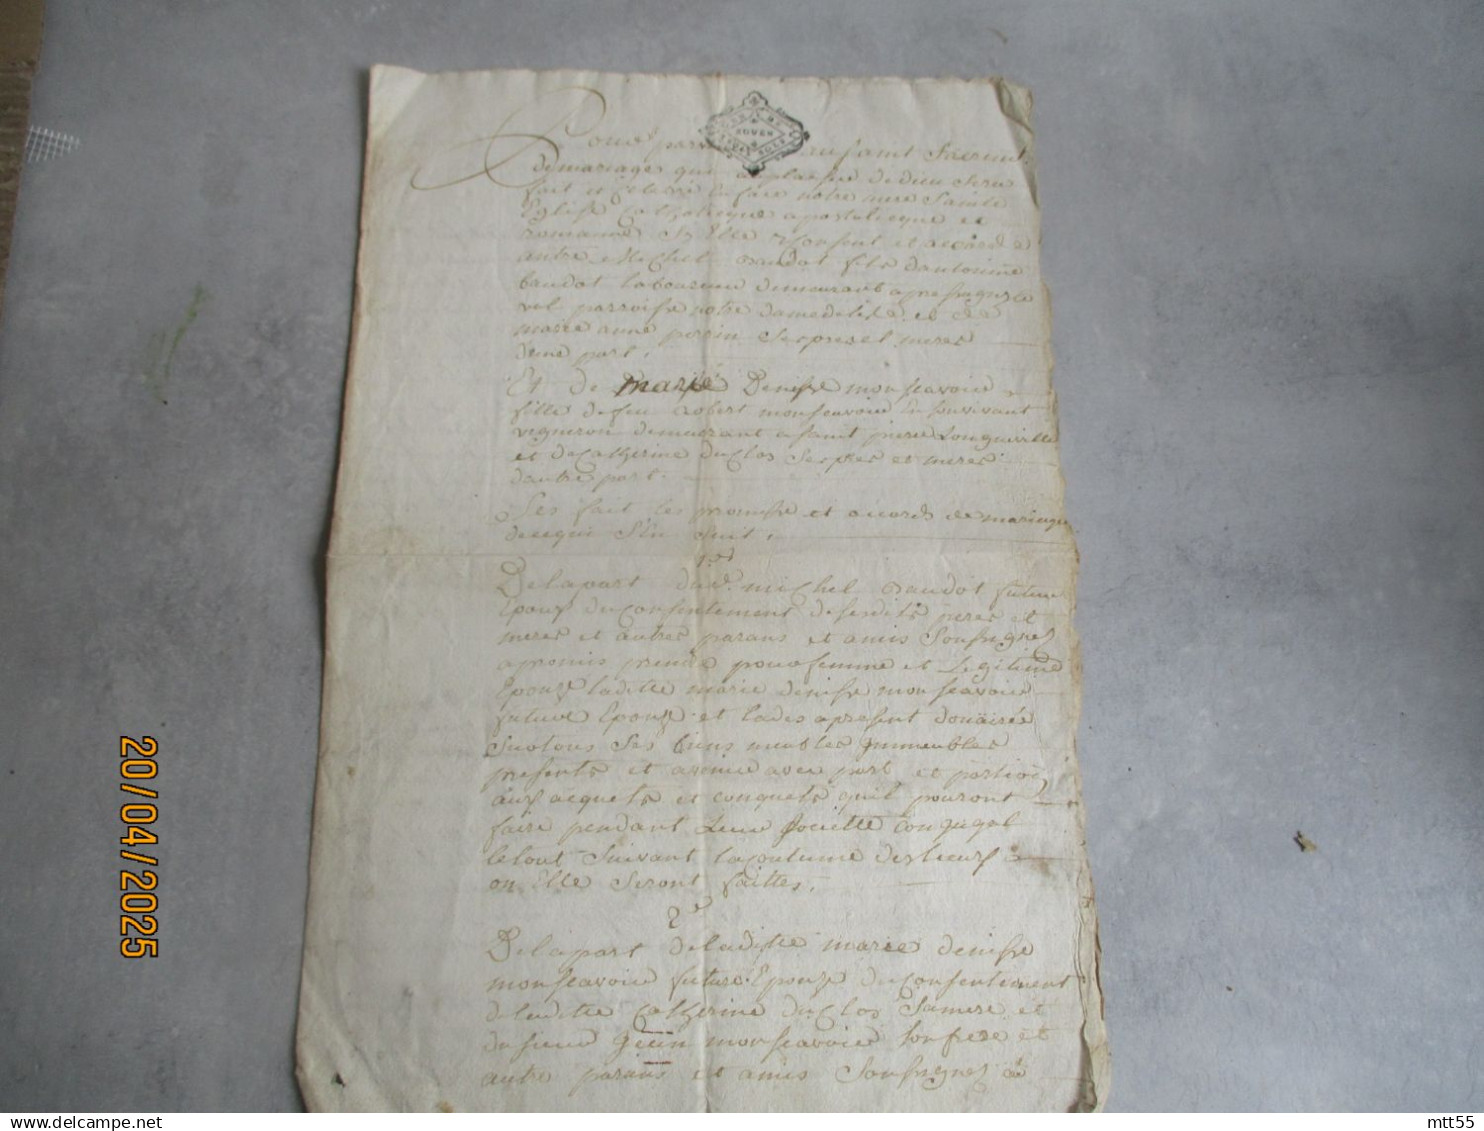 Pour parvenir au saint Sacrement
de mariages qui au plaisir de dieu sera
fait et celebré en face notre mere Sainte
Eglise Catholicque apostolicque et
Romanne Sy Elle Consent et acorde
entre Michel baudot fils dantoinne
baudot laboureur demeurant a presagny le
val parroisse notre dame de lisle et de
marie anne perrin Ses pere et meres
dune part.
Et de marie Denise monscavoir
fille de feu robert monscavoir En son vivant
vigneron demeurant a saint pierre Longueville
et de Catherine duClos Ses pere et meres
dautre part.
Ses fait les promesse et acords de mariage
de ce qui S'en suit,
1er
De la part dud. miChel baudot futur
Epoux du Consentement de sesdits peres et
meres et autres parans et amis Soussignez
a promis prendre pour femme et Legitime
Epouze ladite marie denise monscavoir
future Epouze et lades a present douairée
Sur tous Ses biens meubles Immeubles
presents et avenir avec part et portion
aux acquets et conquets qu'il pouront
faire pendant Leur Societte conjugal
le tout Suivant la Coutume des lieux
ou Elle Seront faittes,
2e
De la part de laditte marie denise
monscavoir future Epouze du Consentement
de laditte Catherine duClos Sa mere et
du sieur Jean monscavoir son frere et
autre parans et amis Soussignez
20/04/2025
mtt55